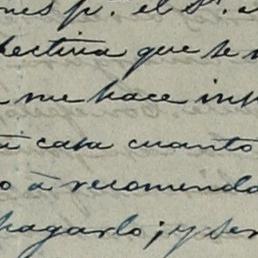 nes p. el Sr. a
pectiva que se
me hace in
casa cuanto
o á recomenda
pagarlo; y ser